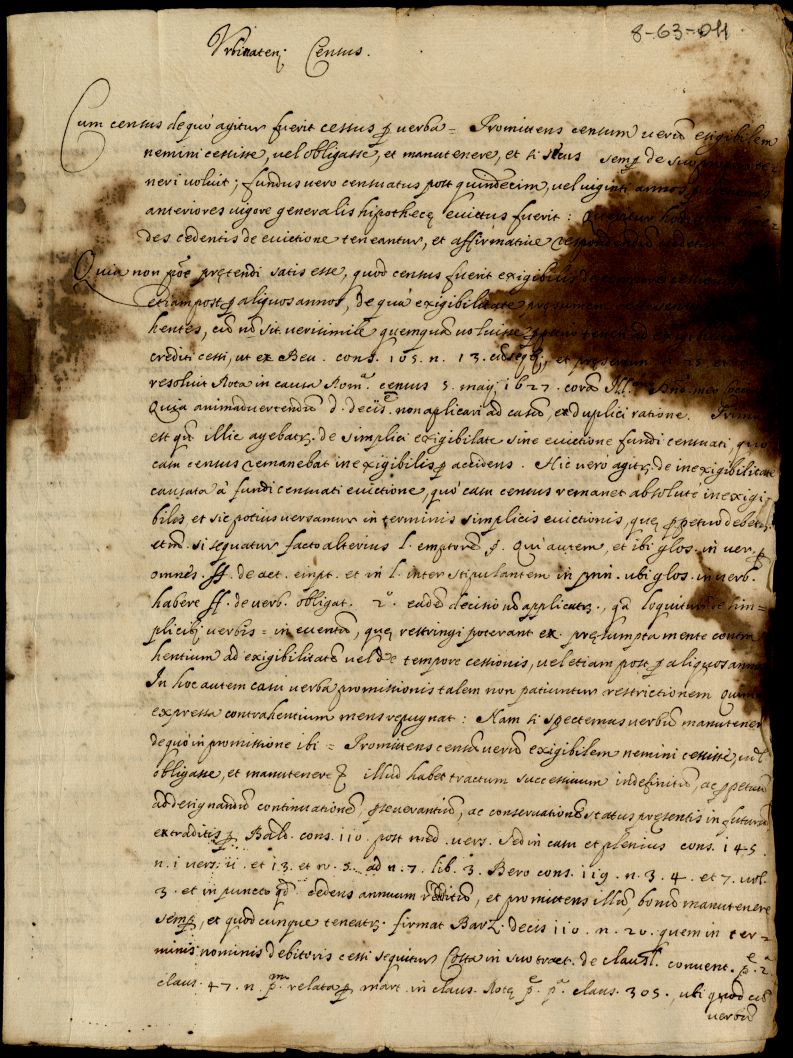 8-63-011
Urbinaten: Census.
Cum census de quo agitur fuerit cessus p verba = Promittens censum verũ exigibilem
nemini cessisse, vel obligasse, et manutenere, et si secus semp de suo proprio te-
neri voluit; fundus vero censuatus post quindecim, vel viginti annos, p creditores
anteriores vigore generalis hipothecę evictus fuerit: Queritur hodie
des cedentis de evictione teneantur, et affirmativè respondendũ videtur
Quia non põt prętendi satis esse, quod census fuerit exigibilis de tempore cessionis
etiam post p aliquos annos, de qua exigibilitate
hentes, cũ nõ sit verisimile quemquã voluisse
crediti cessi, ut ex Bev. cons. 105. n. 13. et
resoluit Rota in causa Romª. census 5. maij 1627. corã Illmo
Quia animadvertendũ d. decisẽ. non aplicari ad casũ, ex duplici ratione. Primo
est qa illic agebatr. de simplici exigibilitate sine evictione fundi censuati, quo
casu census remanebat inexigibilis p accidens. Hic verò agitr. de inexigibilitate
causata à fundi censuati evictione, quo casu census remanet absolutè inexigi-
bilis et sic potius versamur in terminis simplicis evictionis, quę ppetuo debetr.
etiã si sequatur facto alterius l. emptorẽ §. Qui autem, et ibi glos. in ver. p
omnes. ff. de act. empt. et in l. inter stipulantem in prin. ubi glos. in verb.
habere ff. de verb. obligat. 2º. eadẽ decisio nõ applicatr., qa loquitur de sim=
plicibj verbis = in eventũ, quę restringi poterant ex pręsumpta mente contra
hentium ad exigibilitatẽ vel de tempore cessionis, vel etiam post p aliquos annos
In hoc autem casu verba promissionis talem non patiuntur restrictionem
expressa contrahentium mens repugnat: Nam si spectemus verbũ manutenere
de quo in promissione ibi = Promittens censũ verũ exigibilem nemini cessisse, vel
obligasse, et manutenere &ͣ illud habet tractum successivum indefinitũ, ac ppetuũ
ad designandũ continuationẽ, pseverantiã, ac conservationẽ status pręsentis in futurũ
ex traditis p Bald. cons. 110. post med. vers. Sed in casu et plenius cons. 145.
n. 1 vers: ii. et 13. et n. 5. ad n. 7. lib. 3. Bero cons. 119. n. 3. 4. et 7. vol.
3. et in puncto qd cedens annuum redditũ, et promittens illũ, bonũ manutenere
semp, et quodcunque teneatr. firmat Barz. decis 110. n. 20. quem in ter=
minis nominis debitoris cessi sequitur Costa in suo tract. de claus. convent. p. 2ª
claus. 47. n. pm. relata p Mart. in claus. Rotę pe. pª. claus. 305., ubi quod cũ
verbũ